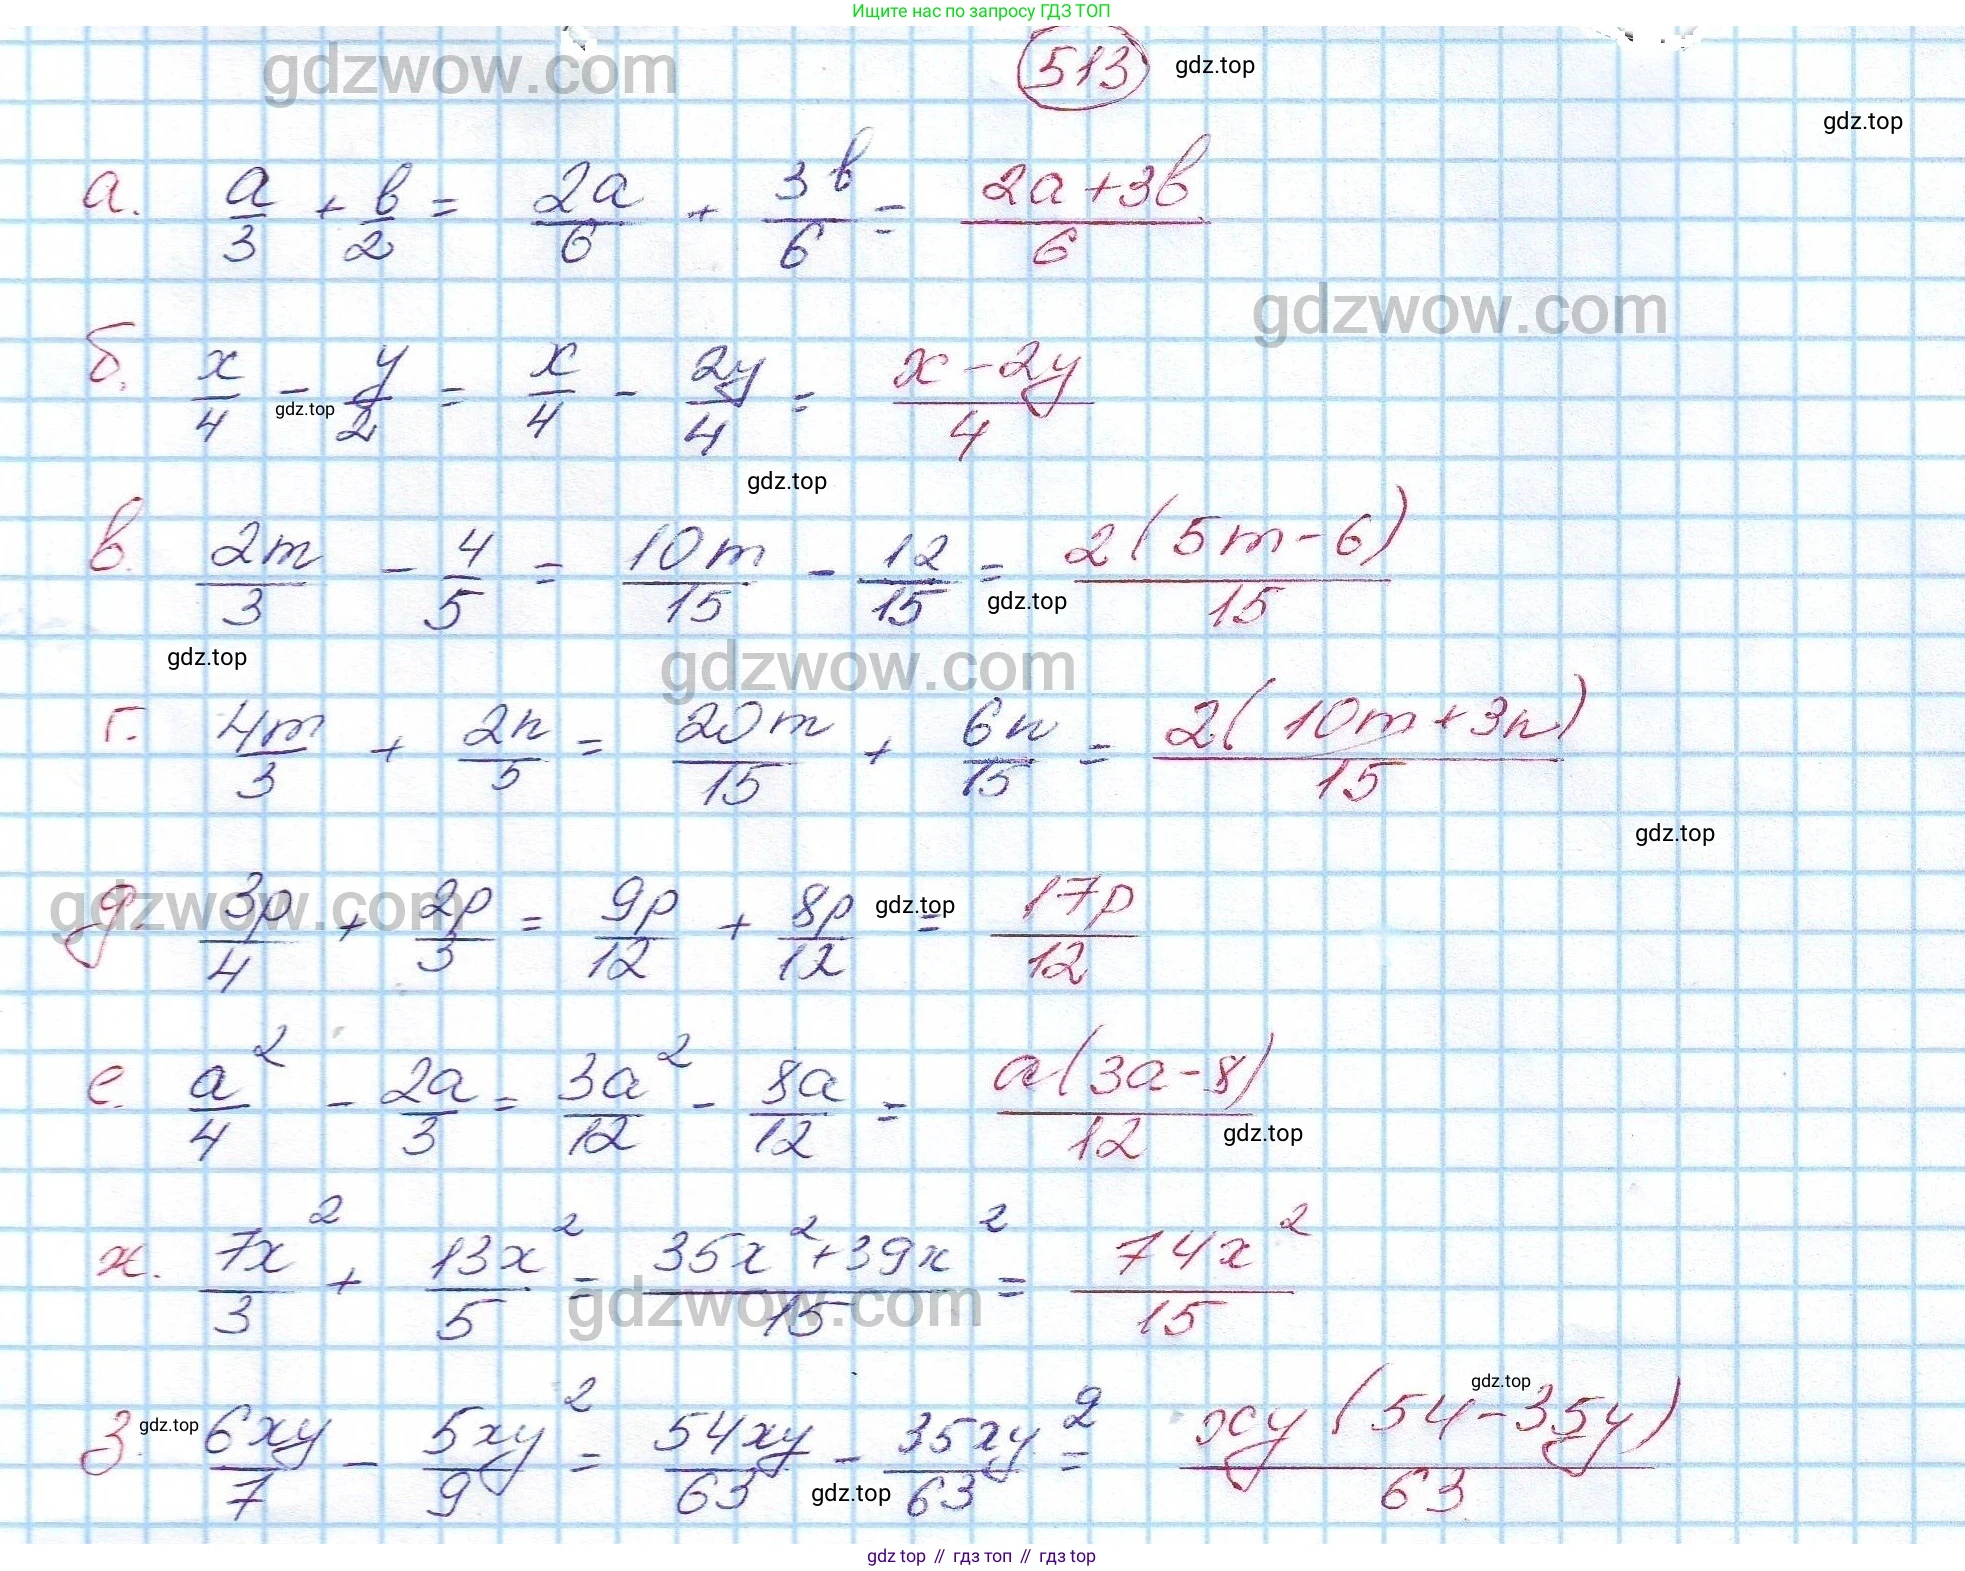 Ищите нас по запросу ГДЗ ТОП
gdzwow.com
513 gdz.top
gdz.top
а. a/3 + b/2 = 2a/6 + 3b/6 = (2a+3b)/6
gdzwow.com
б. x/4 - y/2 = x/4 - 2y/4 = (x-2y)/4
gdz.top
gdz.top
в. 2m/3 - 4/5 = 10m/15 - 12/15 = 2(5m-6)/15
gdz.top
gdz.top
gdzwow.com
г. 4m/3 + 2n/5 = 20m/15 + 6n/15 = 2(10m+3n)/15
gdz.top
gdzwow.com
д. 3p/4 + 2p/3 = 9p/12 + 8p/12 = 17p/12
gdz.top
е. a²/4 - 2a/3 = 3a²/12 - 8a/12 = a(3a-8)/12
gdz.top
ж. 7x²/3 + 13x²/5 = (35x²+39x²)/15 = 74x²/15
gdzwow.com
gdz.top
з. 6xy/7 - 5xy²/9 = 54xy/63 - 35xy²/63 = xy(54-35y)/63
gdz.top
gdz.top
gdz top // гдз топ // гдз top